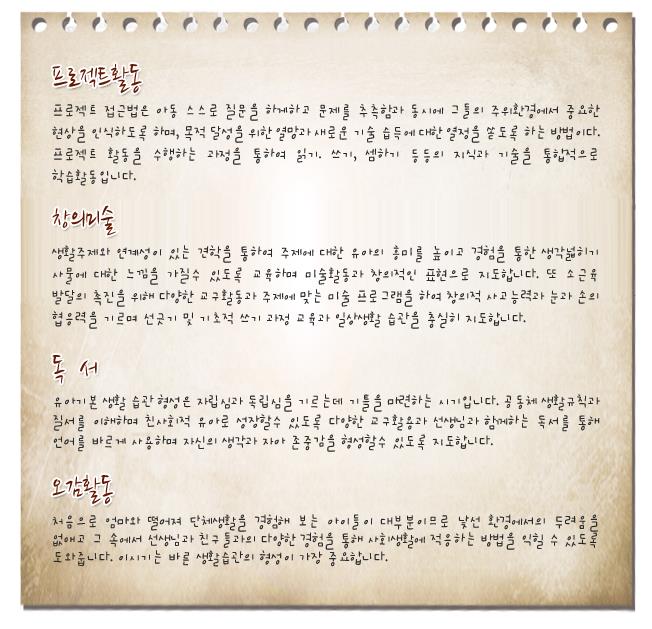 프로젝트활동
프로젝트 접근법은 아동 스스로 질문을 하게하고 문제를 추측함과 동시에 그들의 주위환경에서 중요한
현상을 인식하도록 하며, 목적 달성을 위한 열망과 새로운 기술 습득에 대한 열정을 쏟도록 하는 방법이다.
프로젝트 활동을 수행하는 과정을 통하여 읽기. 쓰기, 셈하기 등등의 지식과 기술을 통합적으로
학습활동입니다.
창의미술
생활주제와 연계성이 있는 견학을 통하여 주제에 대한 유아의 흥미를 높이고 경험을 통한 생각넓히기
사물에 대한 느낌을 가질수 있도록 교육하며 미술활동과 창의적인 표현으로 지도합니다. 또 소근육
발달의 촉진을 위해 다양한 교구활동과 주제에 맞는 미술 프로그램을 하여 창의적 사고능력과 눈과 손의
협응력을 기르며 선긋기 및 기초적 쓰기 과정 교육과 일상생활 습관을 충실히 지도합니다.
독 서
유아기본 생활 습관 형성은 자립심과 독립심을 기르는데 기틀을 마련하는 시기입니다. 공동체 생활규칙과
질서를 이해하며 친사회적 유아로 성장할수 있도록 다양한 교구활용과 선생님과 함께하는 독서를 통해
언어를 바르게 사용하며 자신의 생각과 자아 존중감을 형성할수 있도록 지도합니다.
오감활동
처음으로 엄마와 떨어져 단체생활을 경험해 보는 아이들이 대부분이므로 낯선 환경에서의 두려움을
없애고 그 속에서 선생님과 친구들과의 다양한 경험을 통해 사회생활에 적응하는 방법을 익힐 수 있도록
도와줍니다. 이시기는 바른 생활습관의 형성이 가장 중요합니다.